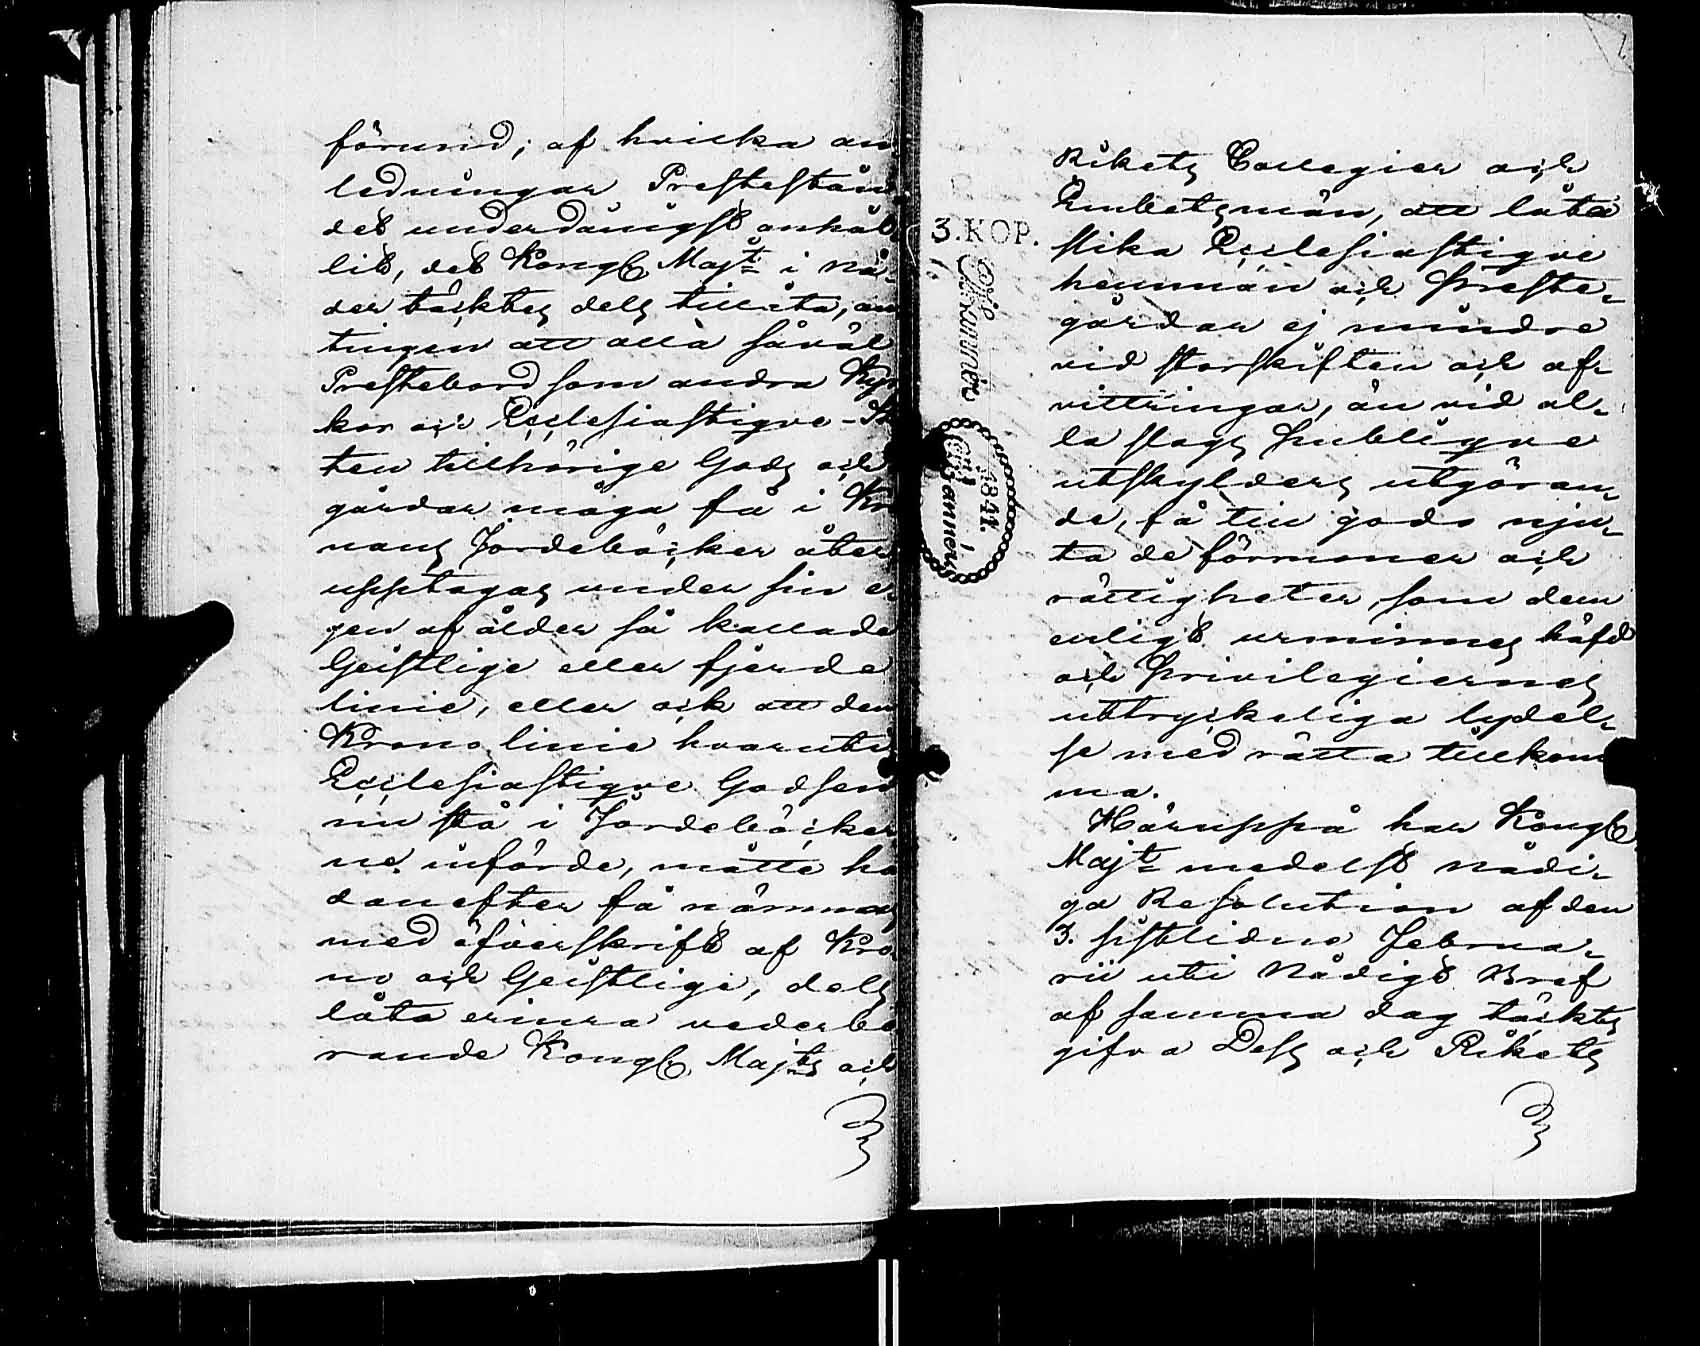 förund; af hvilka an
ledningar Prestestån
det underdånigst anhål
lit, det Kongl. Maj:t i nå-
der täcktes dels tillåta, an
tingen att alla såväl
Prestebord som andra Kyr
kor och Ecclesiastique-St
ten tillhörige Gods och
gårdar måga få i Kro
nans Jordeböcker åter
upptagas under sin e-
gen af ålder så kallade
Geistlige eller fjerde
linie, eller ock att den
Krono linie hvaruti
Ecclesiastique Godsen
nu stå i Jordeböcker
ne införde, måtte hä
danefter få nämnas
med öfverskrift af Kro
no och Geistlige, dels
låta erinra vederbö
rande Kongl. Maj:ts och
Rikets Collegier och
Embetsmän, att låta
slika Ecclesiastique
hemman och Preste-
gårdar ej mindre
vid storskiften och af-
vittringar, än vid al-
la slags Publique
utskylders utgöran-
de, få till godo nju-
ta de förmoner och
rättigheter, som dem
enligt urminnes häfd
och Privilegiernes
uttryckeliga lydel-
se med rätta tillkom
ma.
Häruppå har Kongl.
Maj:t medelst nådi-
ga Resolution af den
3. sistlidne Februa-
rii uti Nådigt Bref
af samma dag täckts
gifva Dess och Rikets
3.KOP.
Skillingar
1841.